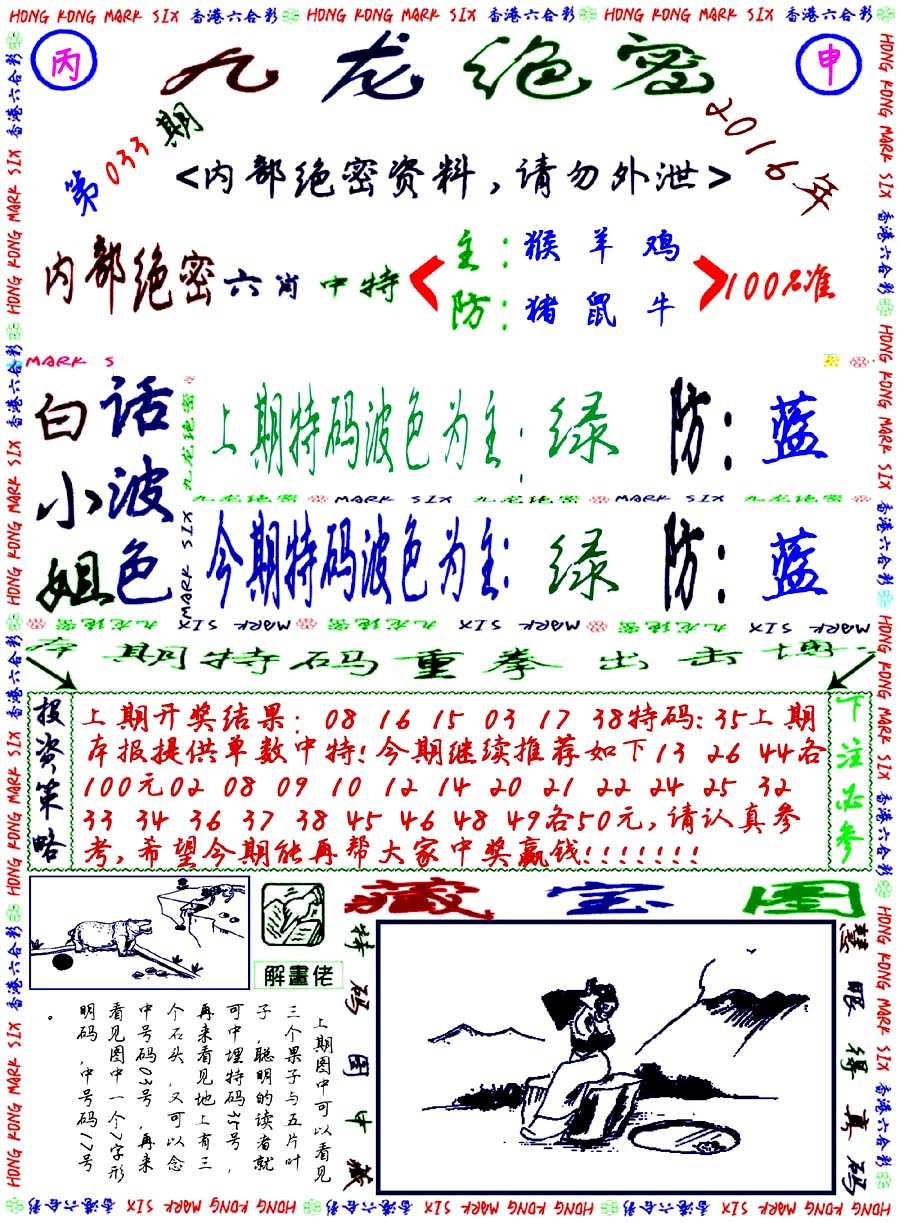 HONG KONG MARK SIX 香港六合彩 HONG KONG MARK SIX 香港六合彩 HONG KONG MARK SIX 香港六合彩
丙
九龙绝密
申
第033期
2016年
<内部绝密资料,请勿外泄>
内部绝密六肖中特
主:猴羊鸡
防:猪鼠牛
100%准
MARK S
白话小姐
波色
九龙绝密
MARK SIX
上期特码波色为主:绿 防:蓝
九龙绝密 MARK SIX 九龙绝密 MARK SIX 九龙绝密
今期特码波色为主:绿 防:蓝
MARK SIX 九龙绝密 MARK SIX 九龙绝密 MARK SIX 九龙绝密
本期特码重拳出击博
投资策略
上期开奖结果: 08 16 15 03 17 38特码:35上期
本报提供单数中特!今期继续推荐如下13 26 44各
100元02 08 09 10 12 14 20 21 22 24 25 32
33 34 36 37 38 45 46 48 49各50元,请认真参
考,希望今期能再帮大家中奖赢钱!!!!!!!
下注必参
藏宝图
解畫佬
特码图中藏
慧眼得真码
上期图中可以看见
三个果子与五片叶
子,聪明的读者就
可中埋特码35号,
再来看见地上有三
个石头,又可以念
中号码03号,再来
看见图中一个7字形
明码,中号码17号
。
HONG KONG MARK SIX 香港六合彩 HONG KONG MARK SIX 香港六合彩 HONG KONG MARK SIX 香港六合彩